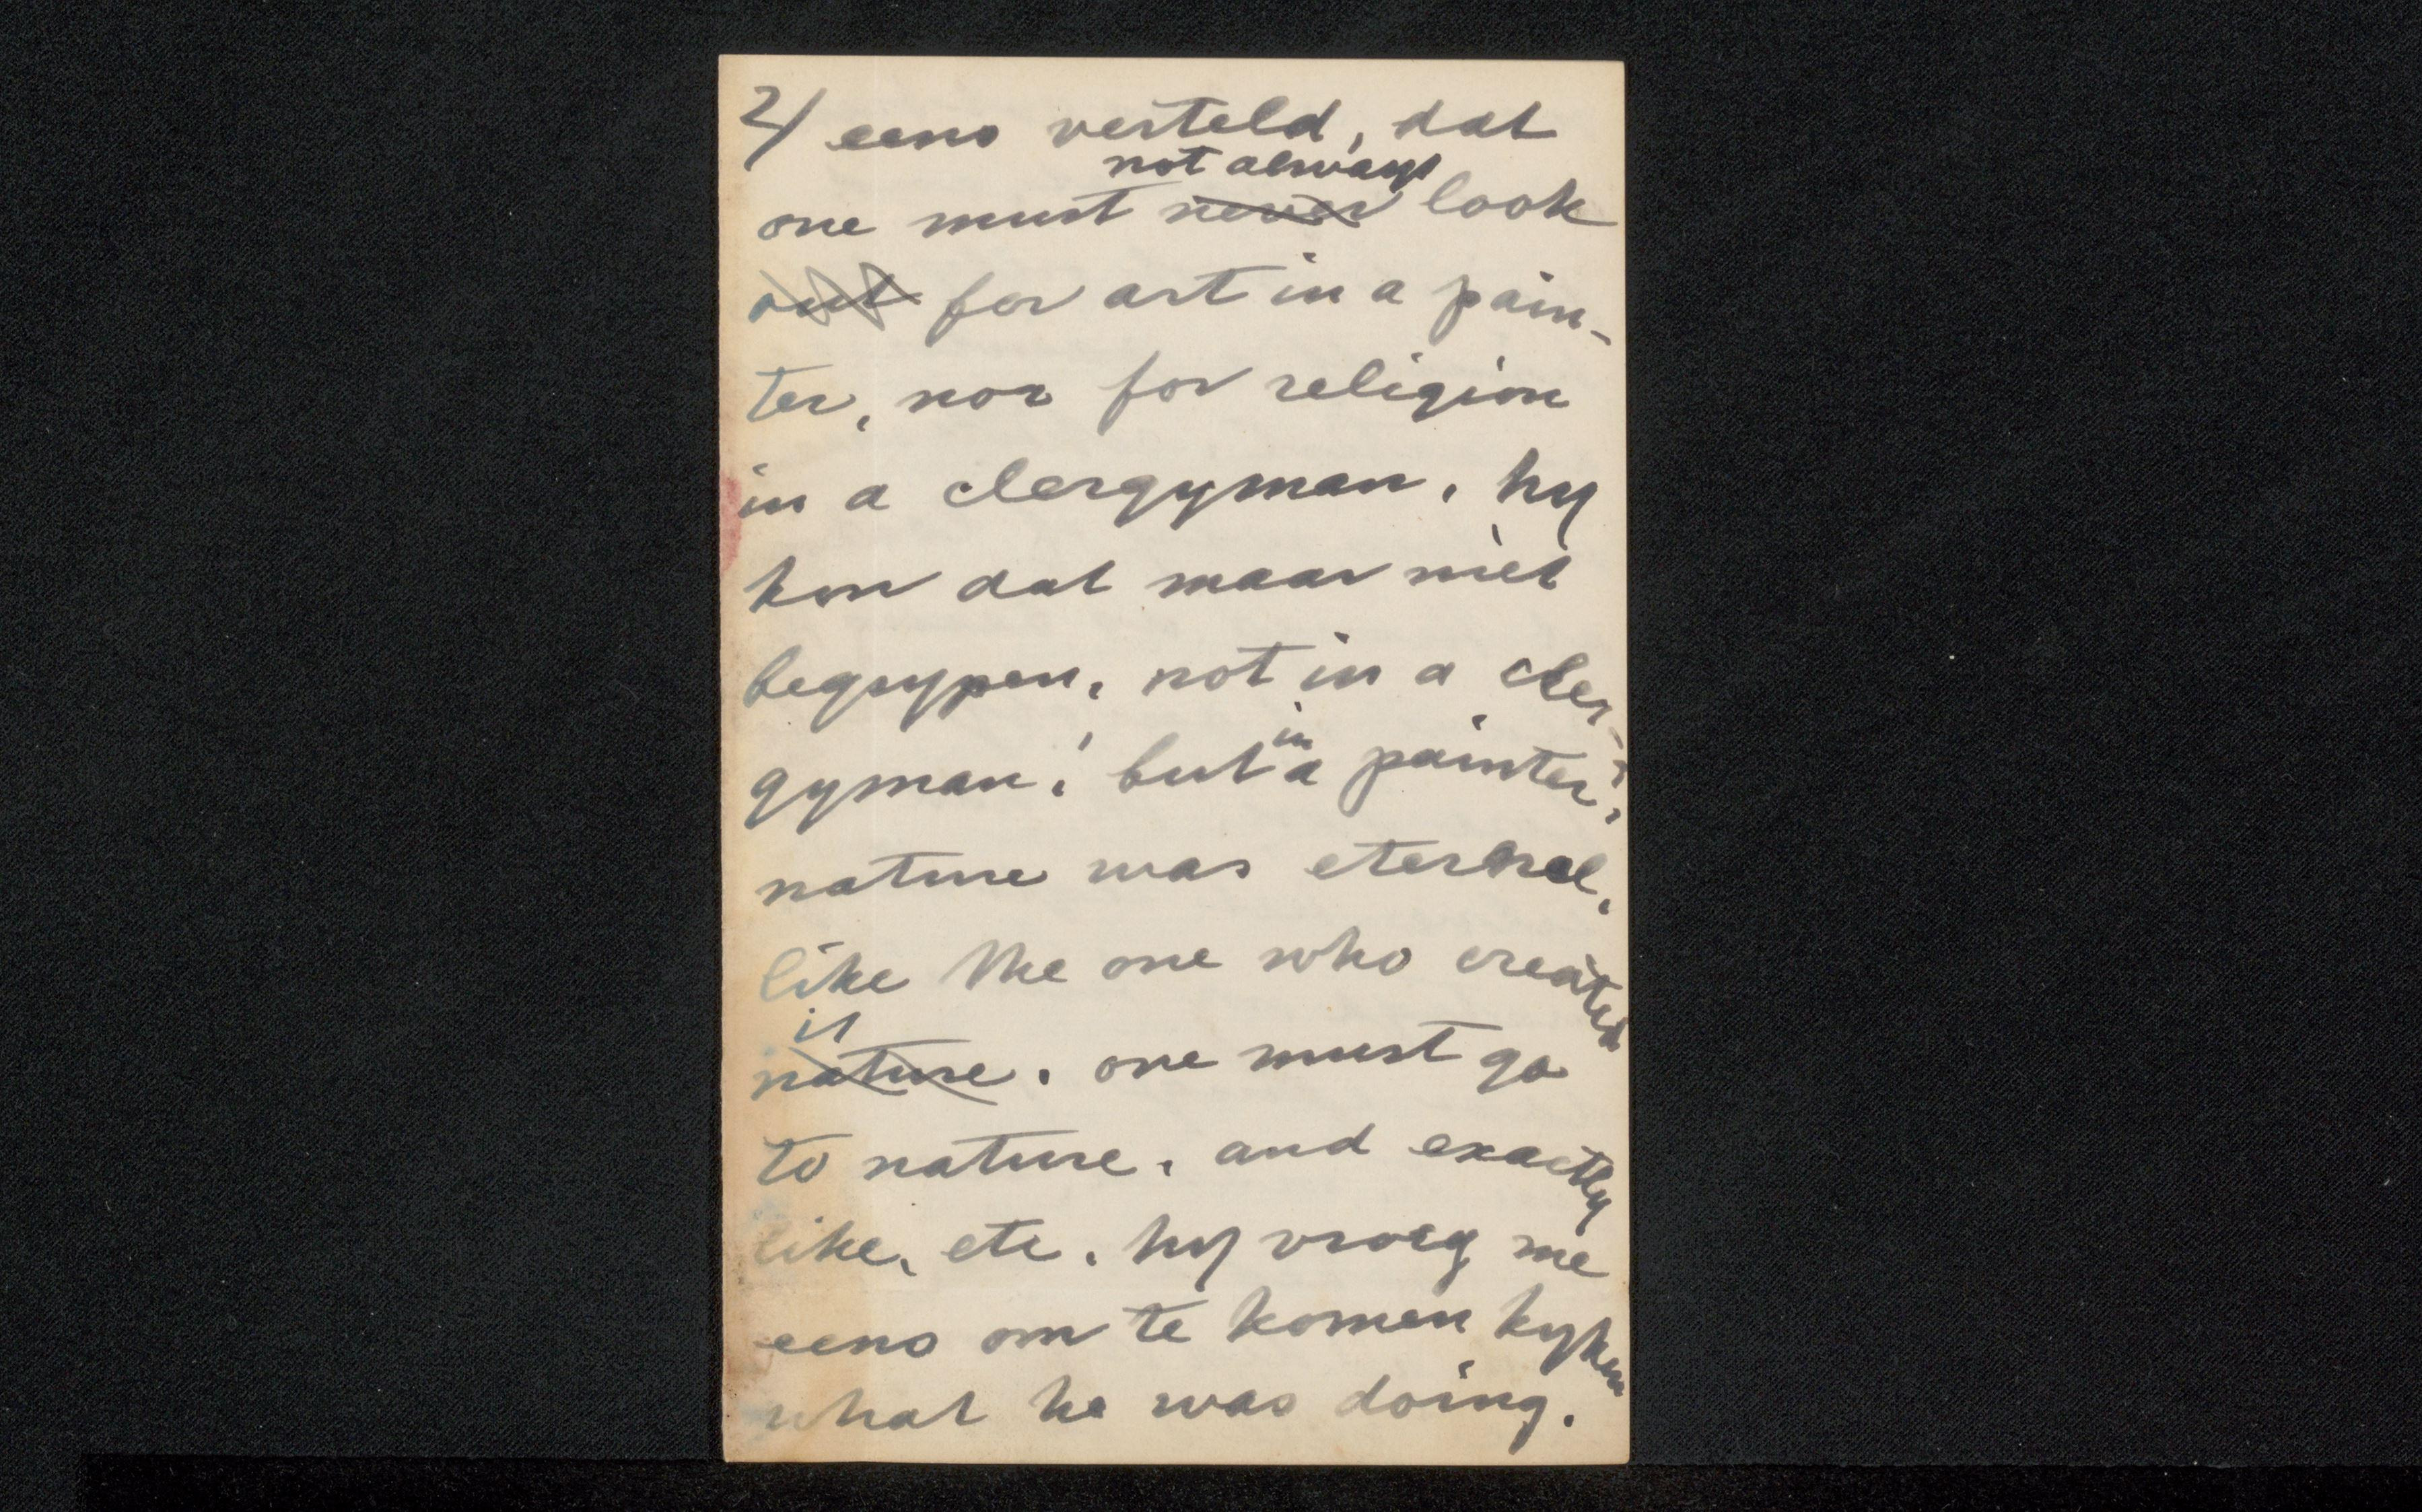 2/ eens verteld, dat
not always
one must never look
out for art in a pain-
ter, nor for religion
in a clergyman, hy
kon dat maar niet
begrypen, not in a cler-
gyman! but in a painter?,
nature was eternal,
like the one who created
it
nature. one must go
to nature, and exactly
like, etc. hy vroeg me
eens om te komen kyken
what he was doing.